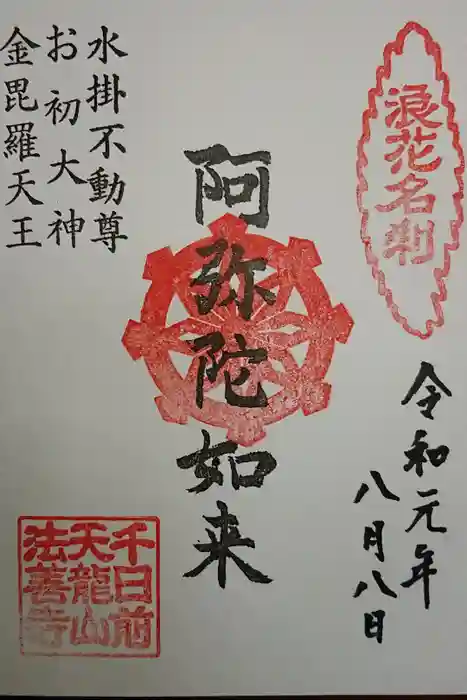 浪花名刹
令和元年
八月八日
阿弥陀如来
水掛不動尊
お初大神
金毘羅天王
千日前
天龍山
法善寺